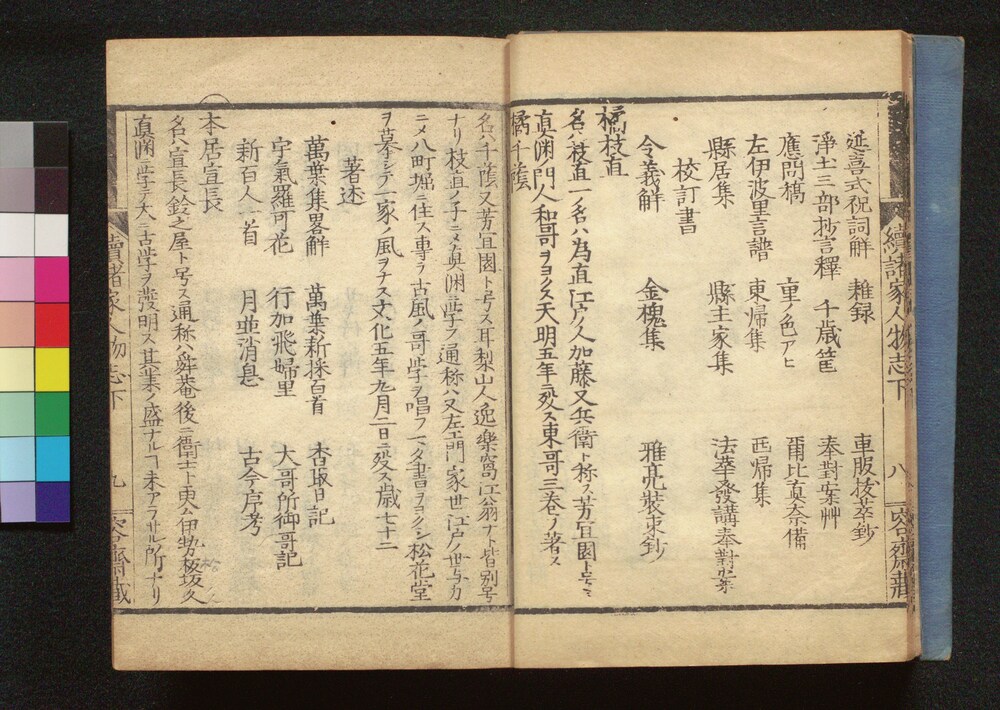 續諸家人物志下 八 容齋藏
延喜式祝詞解 雜録 車服抜萃鈔
淨土三部抄言釋 千歳筐 奉對案艸
應問槁 重ノ色アヒ 爾比真奈備
左伊波里言譜 東帰集 西帰集
縣居集 縣主家集 法華發講奉對案
校訂書
令義解 金槐集 雅亮裝束鈔
橘枝直
名ハ枝直一ノ名ハ為直江戸ノ人加藤又兵衛ト称ス芳宜園ト号ス
真渕ノ門人和哥ヲヨクス天明五年ニ歿ス東哥三巻ノ著ス
橘千蔭
名ハ千蔭又芳宜園ト号ス耳梨山人逸樂窩江翁ナト皆別号
ナリ枝直ノ子ニメ真渕ニ学フ通称ハ又左エ門家世江戸ノ世与力
ニメ八町堀ニ住ス専ラ古風ノ哥学ヲ唱フ又書ヲヨクシ松花堂
ヲ慕シテ一家ノ風ヲナス文化五年九月二日ニ歿ス歳七十二
著述
萬葉集畧解 萬葉新採百首 香取日記
宇氣羅可花 行加飛婦里 大哥所御哥記
新百人一首 月並消息 古今序考
本居宣長
名ハ宣長鈴之屋ト号ス通称ハ舜菴後ニ衛士ト更ム伊勢板坂人
真渕ニ学テ大ニ古学ヲ發明ス其業ノ盛ナルヿ未アラサル所ナリ
續諸家人物志下 九 容齋藏